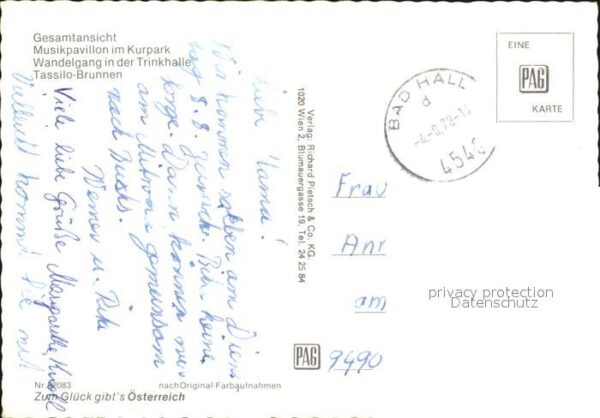 Gesamtansicht
Musikpavillon im Kurpark
Wandelgang in der Trinkhalle
Tassilo-Brunnen
Liebe Mama!
Wir kommen selben am Diens
tag 8.8. zurück. Bitte keine
Sorge. Dann können wir
am Mittwoch gemeinsam
nach Buchs.
Werner u. Rita
Viele liebe Grüße Margarethe,
Vielleicht kommst Sie mit
Verlag: Richard Pietsch & Co. KG.
1020 Wien 2, Blumauergasse 19, Tel. 24 25 84
EINE
PAG
KARTE
BAD HALL
d
4540
Frau
Anr
am
9490
privacy protection
Datenschutz
PAG
nach Original-Farbaufnahmen
Zum Glück gibt's Österreich